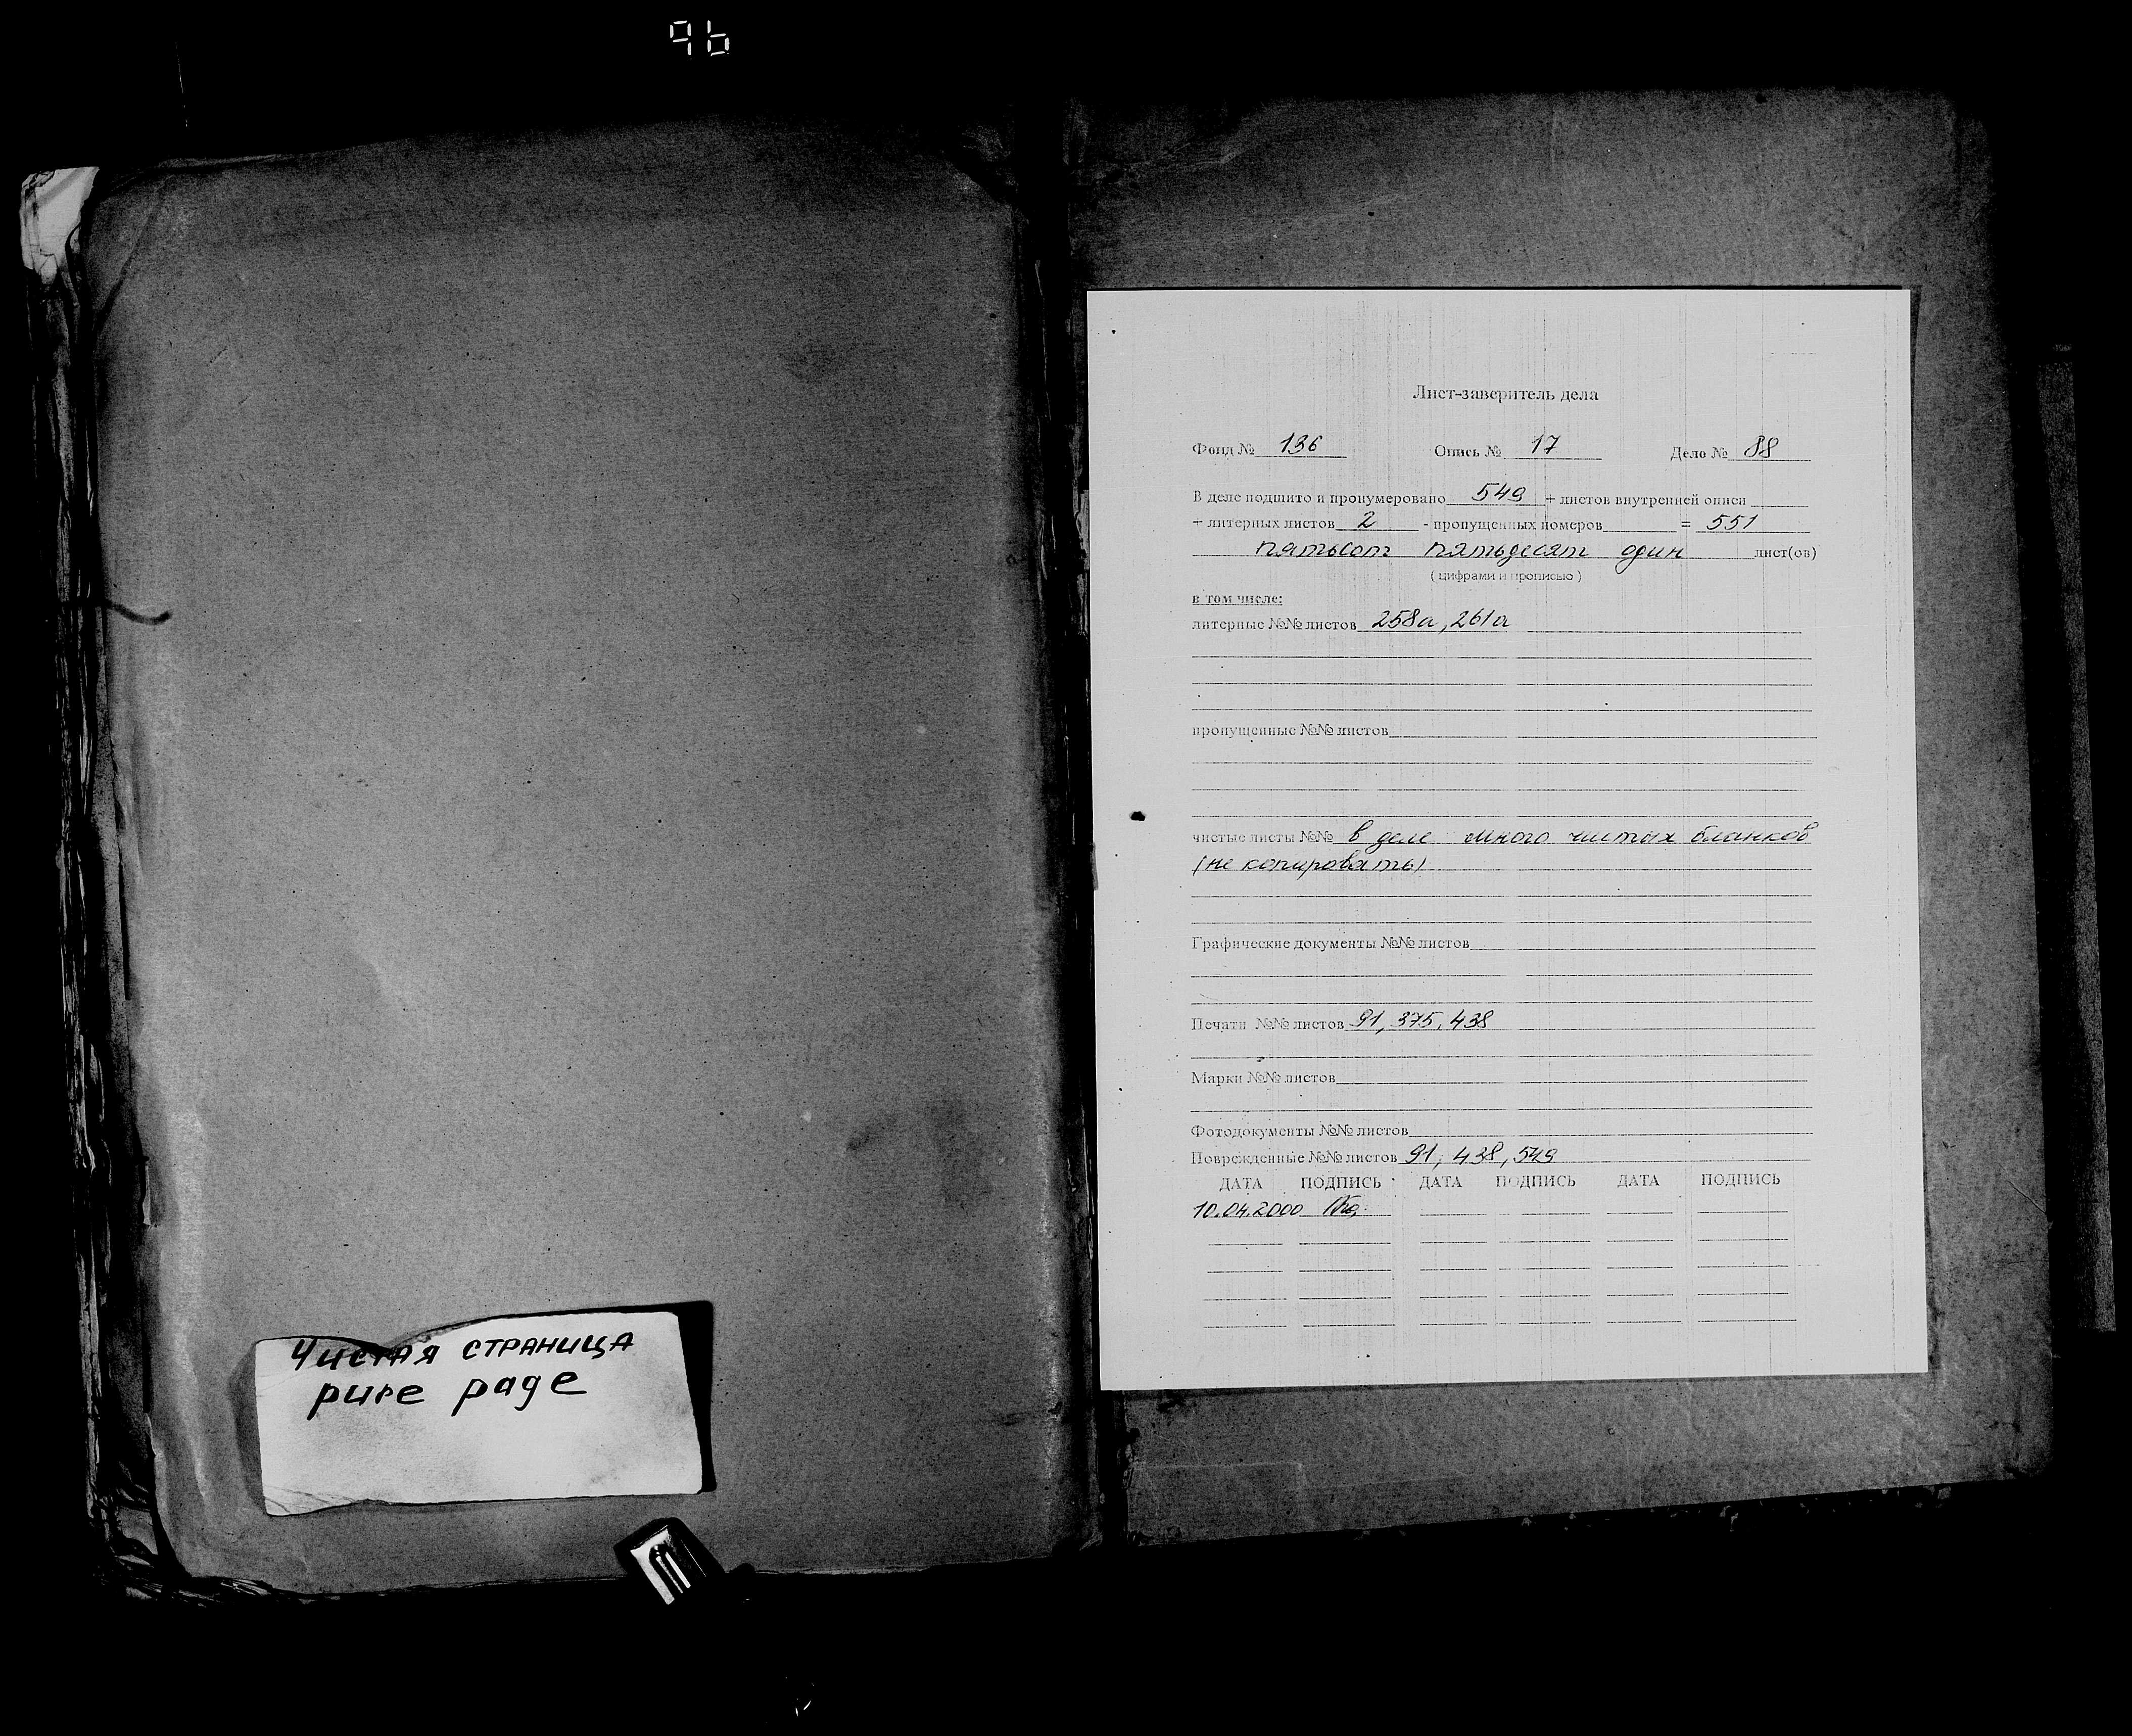 96
Чистая страница
pure page
Лист-заверитель дела
Фонд № 136 Опись № 17 Дело № 88
В деле подшито и пронумеровано 549 + листов внутренней описи
+ литерных листов 2 - пропущенных номеров = 551
пятьсот пятьдесят один лист(ов)
( цифрами и прописью )
в том числе:
литерные №№ листов 258а, 261а
пропущенные №№ листов
чистые листы №№ в деле много чистых бланков
(не копировать)
Графические документы №№ листов
Печати №№ листов 91, 375, 438
Марки №№ листов
Фотодокументы №№ листов
Поврежденные №№ листов 91, 438, 549
ДАТА ПОДПИСЬ ДАТА ПОДПИСЬ ДАТА ПОДПИСЬ
10.04.2000